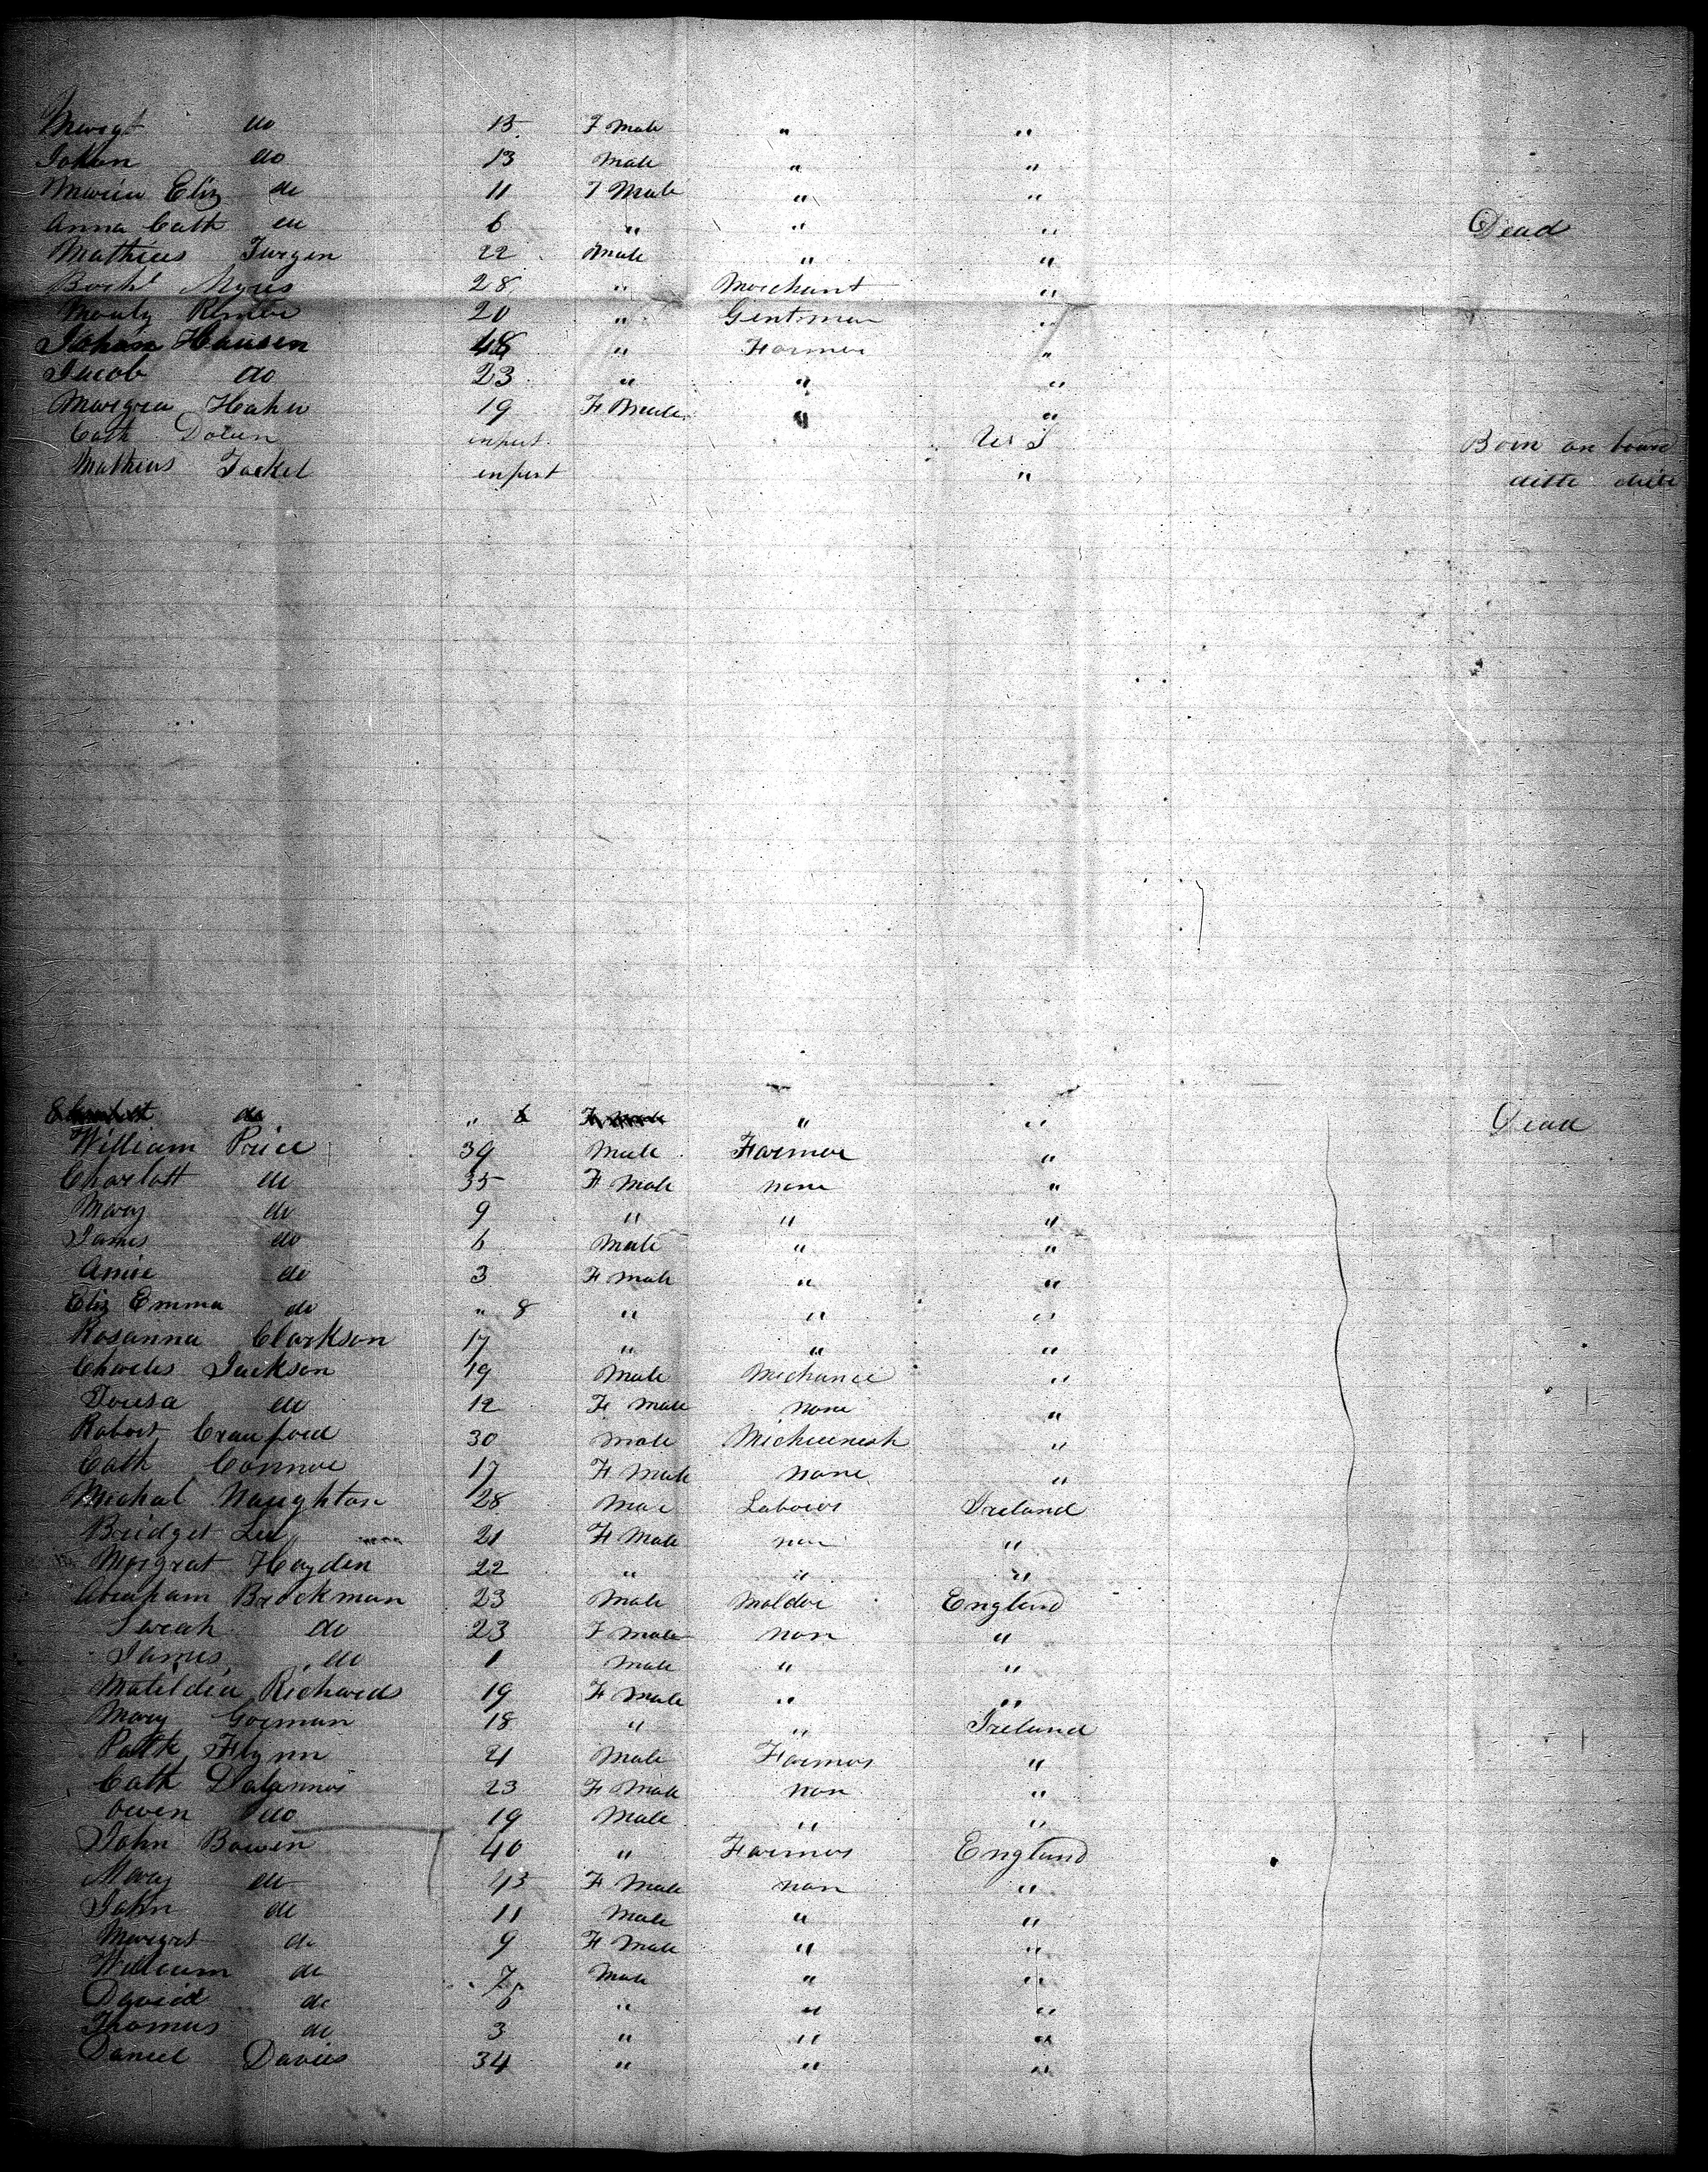 Margt do 15 F Male " "
Johan do 13 Male " "
Maria Eliz do 11 F Male " "
Anna Cath do 6 " " " Dead
Mathias Jurgen 22 Male " "
28 " Merchant "
20 " Gentsman "
Johan Hausen 48 " Farmer "
Jacob do 23 " " "
Margrea Hahn 19 F Male " "
Cath infent U S Born on board
Mathias Jackel infent " ditto ditto
do " 6 F Male " " Dead
William Price 39 Male Farmer "
Charlott do 35 F Male none "
Mary do 9 " " "
James do 6 Male " "
Anne do 3 F Male " "
Eliz Emma do " 8 " " "
Rosanna Clarkson 17 " " "
Charles Jackson 19 Male Mechanic "
do 12 F Male none "
Robert Crauford 30 Male "
Cath Connor 17 F Male none "
Michal Naughton 28 Mae Labores Ireland
Bridget 21 F Male non "
Margrat Hayden 22 " " "
Abraham Brockman 23 Male Molder England
Sarah do 23 F Male non "
James do 1 Male " "
Matildia Richards 19 F Male " "
Mary Gorman 18 " " Ireland
Patk Flynn 21 Male Farmer "
Cath 23 F Male non "
Owen do 19 Male " "
John Bowen 40 " Farmer England
Mary do 45 F Male non "
John do 11 Male " "
Margrt do 9 F Male " "
William do 7 Male " "
David do 6 " " "
Thomas do 3 " " "
Daniel Davies 34 " " "